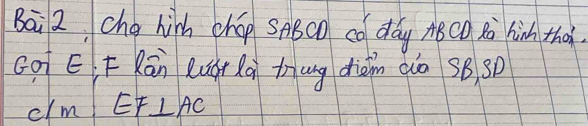 Bài 2, Cho hình chóp SABCD có đáy ABCD là hình thoi.
Gọi E, F lần lượt là trung điểm của SB, SD
c/m EF⊥AC